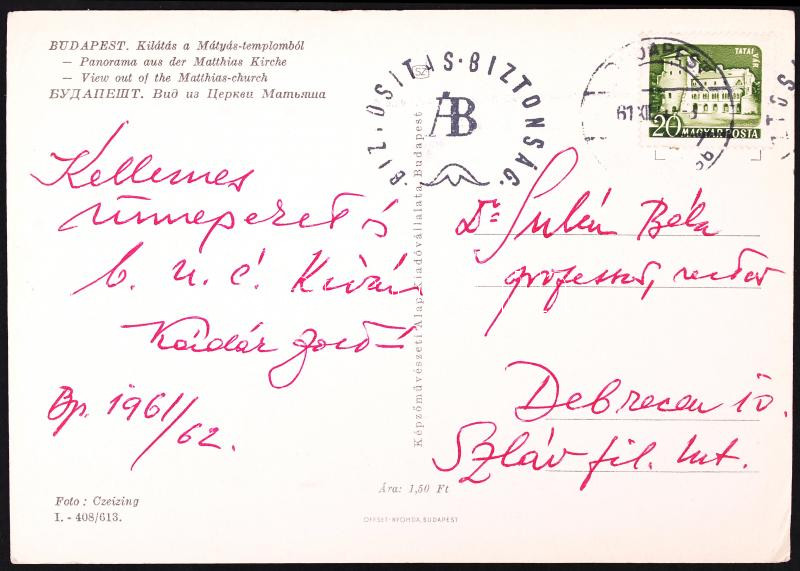 BUDAPEST. Kilátás a Mátyás-templomból
— Panorama aus der Matthias Kirche
— View out of the Matthias-church
БУДАПЕШТ. Вид из Церкви Матьяша
BIZTOSITÁS·BIZTONSÁG·
ÁB
BUDAPEST
61 XII
TATAI VÁR
20 MAGYAR POSTA
Kellemes
ünnepeket és
b. u. é. kíván
Kádár
Bp. 1961/62.
Képzőművészeti Alap Kiadóvállalata, Budapest
Dr Sulán Béla
professor, rector
Debrecen 10.
Szláv fil. Int.
Ára: 1,50 Ft
Foto : Czeizing
I. - 408/613.
OFFSET-NYOMDA, BUDAPEST